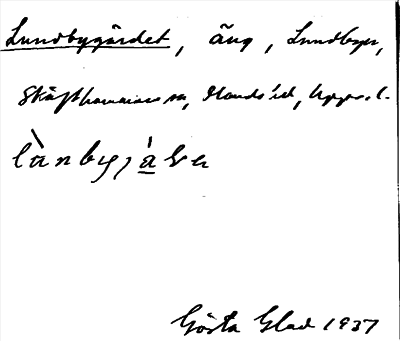 Lundbygärdet, äng, Lundby,
Skäfthammars sn, Olands hd, Upps. l.
Gösta Glad 1937